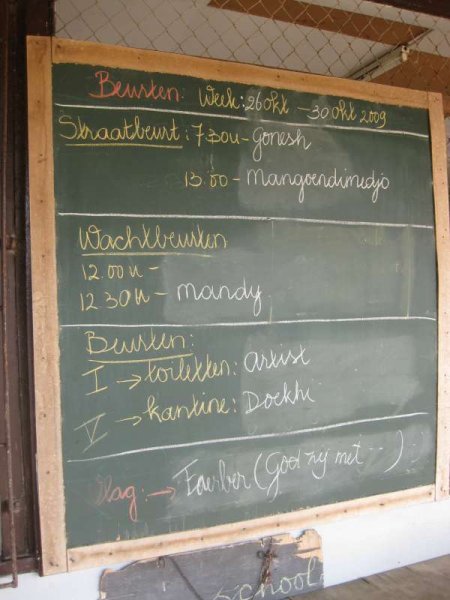 Beurten: Week: 26 okt - 30 okt 2009
Straatbeurt: 7.30u - Gonesh
13.00 - Mangoendimedjo
Wachtbeurten
12.00u -
12.30u - Mandy
Beurten:
I → toiletten: Artist
V → kantine: Doekhi
Vlag: → Faerber (God zij met ...)
School